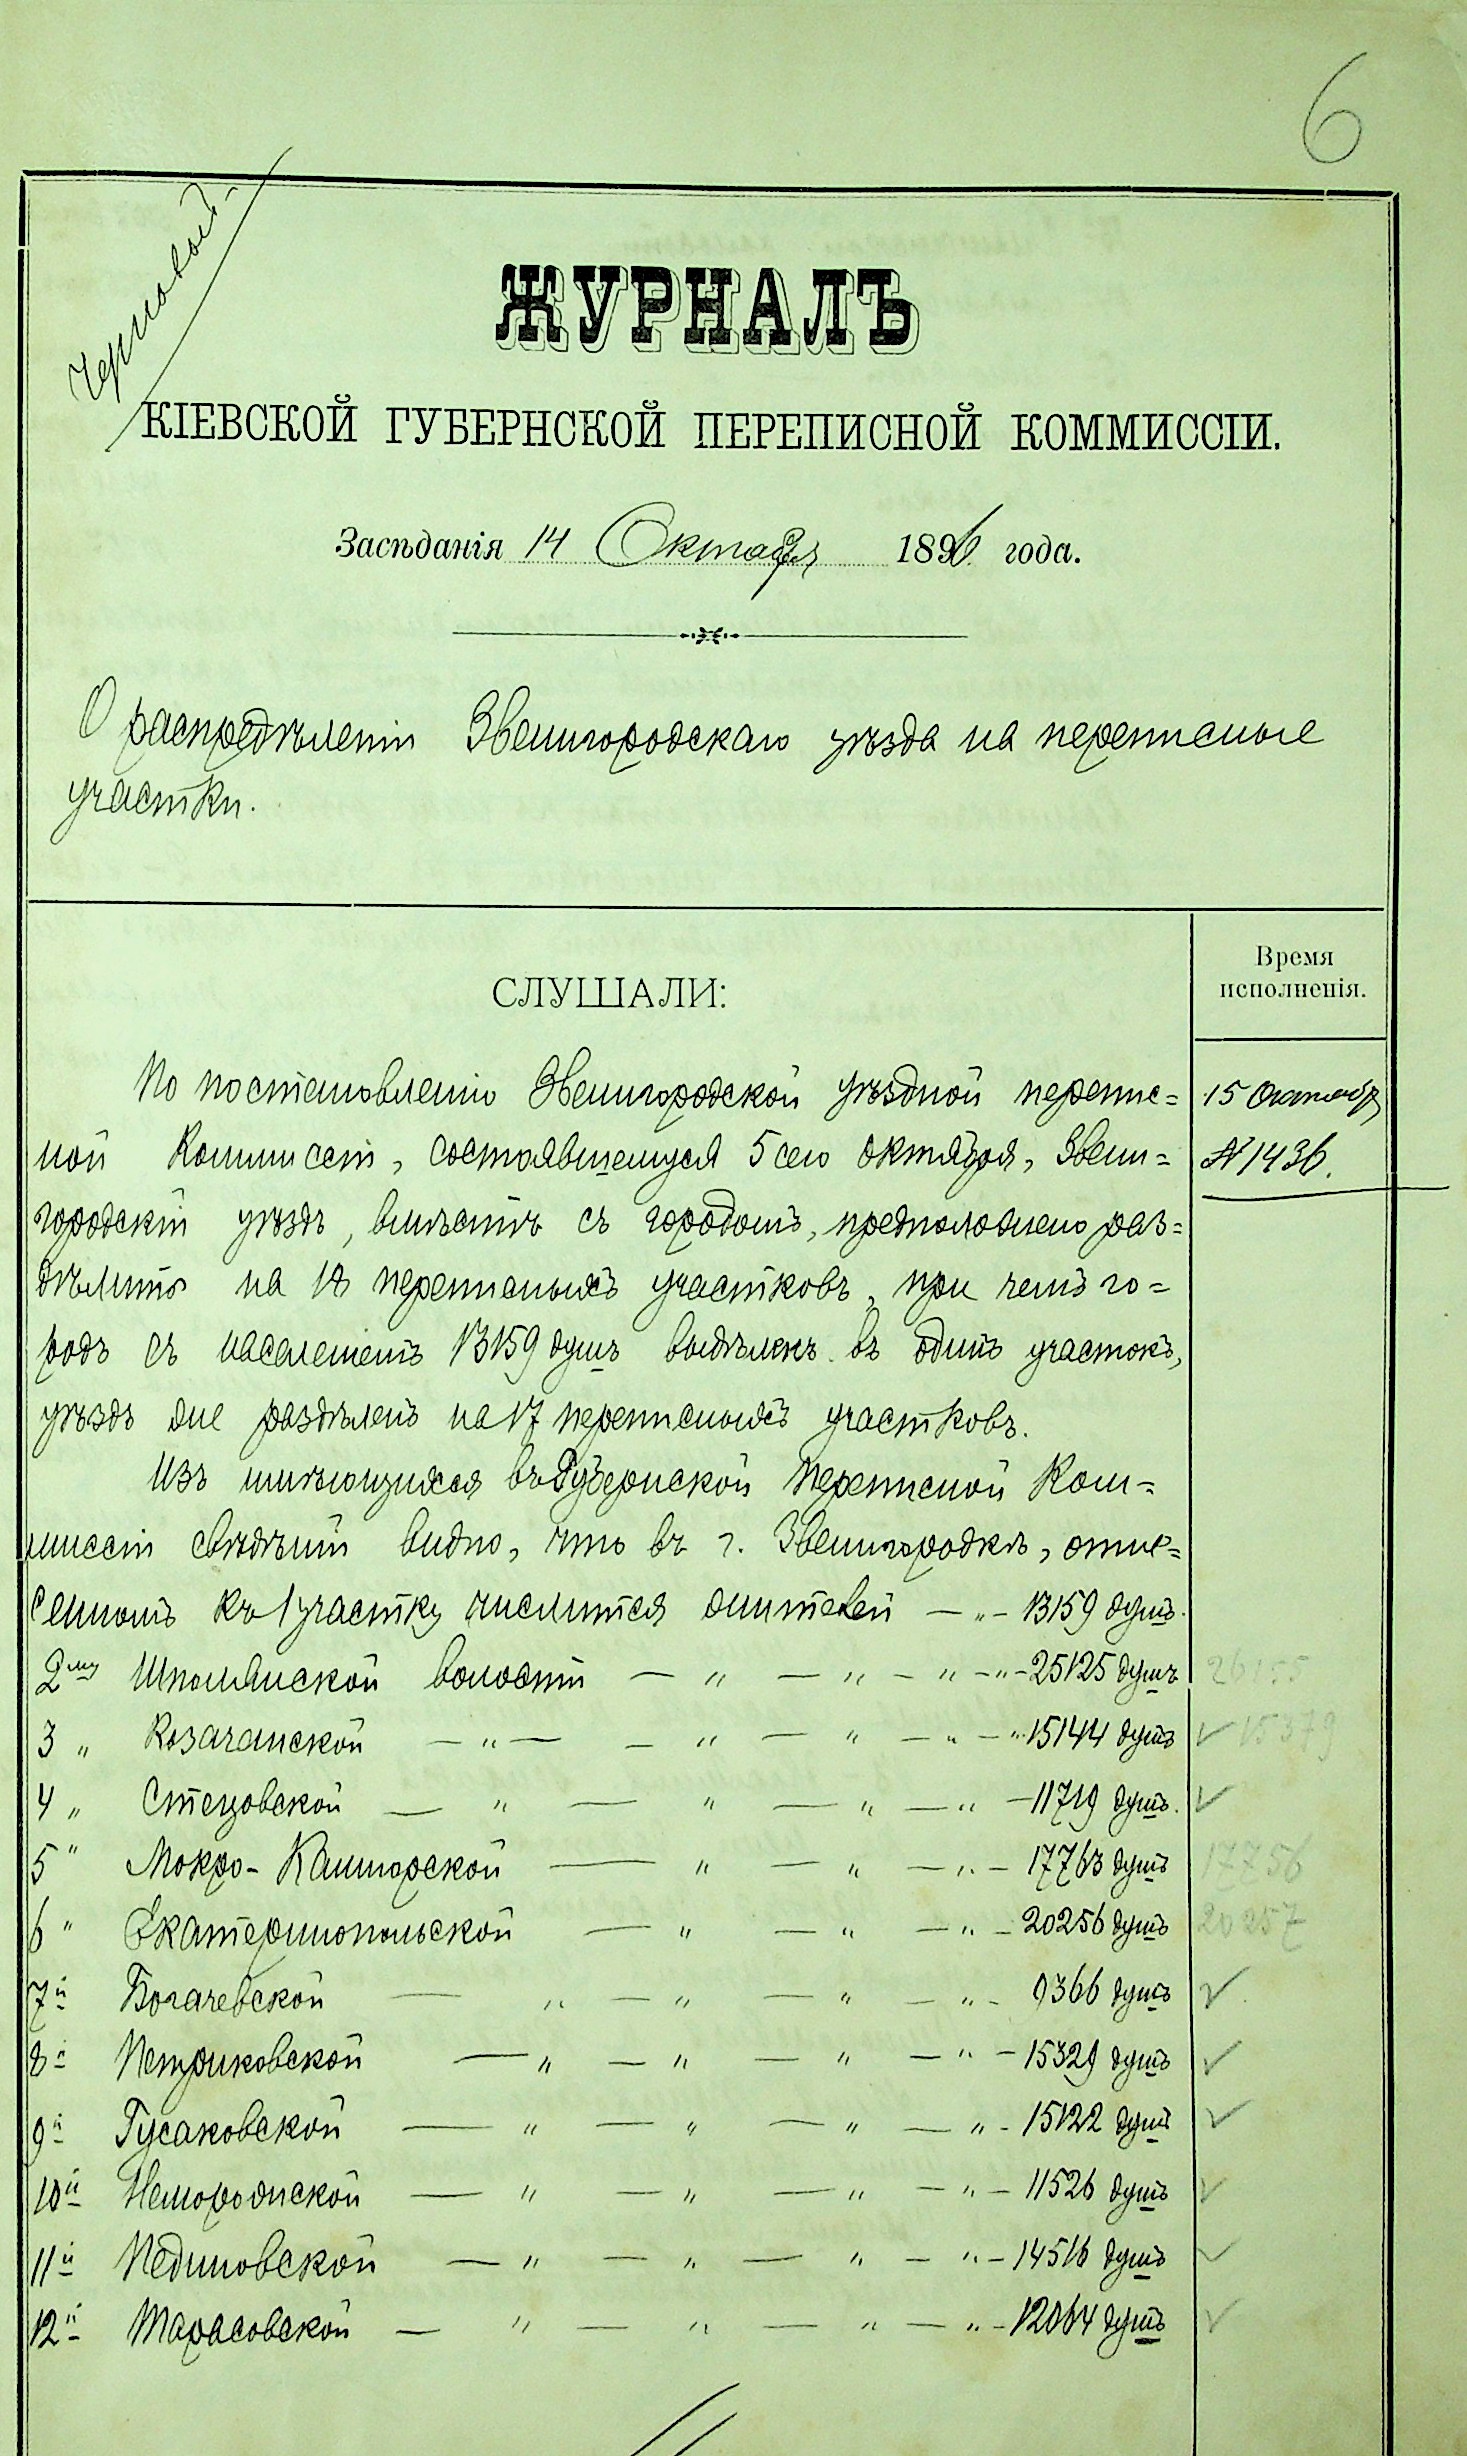 6
Черновый
ЖУРНАЛЪ
КІЕВСКОЙ ГУБЕРНСКОЙ ПЕРЕПИСНОЙ КОММИССІИ.
Засѣданія 14 Октября 1896 года.
О распредѣленіи Звенигородскаго уѣзда на переписные
участки.
СЛУШАЛИ:
Время
исполненія.
По постановленію Звенигородской уѣздной перепис=
ной Коммиссіи, состоявшемуся 5 сего октября, Звени=
городскій уѣздъ, вмѣстѣ съ городомъ, предположено раз=
дѣлить на 18 переписныхъ участковъ, при чемъ го=
родъ съ населеніемъ 13159 душъ выдѣленъ въ одинъ участокъ,
уѣздъ же раздѣленъ на 17 переписныхъ участковъ.
Изъ имѣющихся въ Губернской Переписной Ком=
миссіи свѣдѣній видно, что въ г. Звенигородкѣ, отне=
сенномъ къ 1 участку числится жителей — „ — 13159 душъ.
2му Шполянской волости — „ — „ — „ — „ — 25125 душъ
3 „ Козачанской — „ — — „ — „ — „ — „ 15144 душъ
4 „ Стецовской — „ — „ — „ — „ — 11719 душъ.
5 „ Мокро-Калигорской — „ — „ — „ — 17763 душъ
6 „ Екатеринопольской — „ — „ — „ — 20256 душъ
7й Богачевской — „ — „ — „ — „ — 9366 душъ
8й Петриковской — „ — „ — „ — „ — 15329 душъ
9й Гусаковской — „ — „ — „ — „ — 15122 душъ
10й Неморожской — „ — „ — „ — „ — 11526 душъ
11й Пединовской — „ — „ — „ — „ — 14516 душъ
12й Тарасовской — „ — „ — „ — „ — 12064 душъ
15 Октября
№ 1436.
26155
✓ 15379
✓
17756
20257
✓
✓
✓
✓
✓
✓